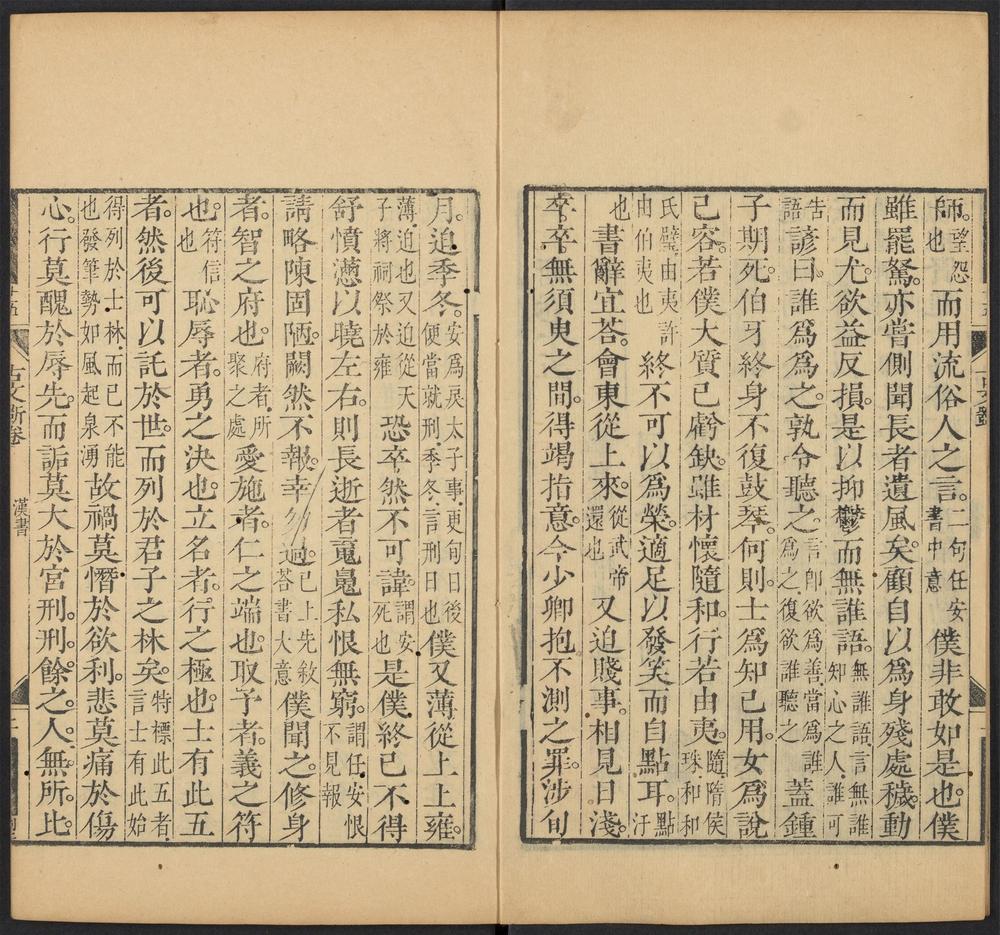 師。望怨也而用流俗人之言。二句任安書中意僕非敢如是也。僕
雖罷駑。亦嘗側聞長者遺風矣。顧自以爲身殘處穢。動
而見尤。欲益反損。是以抑鬱而無誰語。無誰語言無誰知心之人誰可
告語諺曰。誰爲爲之。孰令聽之。言卽欲爲善當爲誰爲之復欲誰聽之蓋鍾
子期死。伯牙終身不復鼓琴。何則。士爲知己用。女爲說
己容。若僕大質已虧缺。雖材懷隨和。行若由夷。隨隋侯珠和和
氏璧由夷許由伯夷也終不可以爲榮。適足以發笑而自點耳。點汙
也書辭宜荅。會東從上來。從武帝還也又迫賤事。相見日淺。
卒卒無須臾之間。得竭指意。今少卿抱不測之罪。涉旬
月。迫季冬。安爲戾太子事更旬日後便當就刑季冬言刑日也僕又薄從上上雍。
薄迫也又迫從天子將祠祭於雍恐卒然不可諱。謂安死也是僕終已不得
舒憤懣以曉左右。則長逝者䰟魄私恨無窮。謂任安恨不見報
請略陳固陋。闕然不報。幸勿過。已上先敘荅書大意僕聞之。修身
者。智之府也。府者所聚之處愛施者。仁之端也。取予者。義之符
也。符信也恥辱者。勇之決也。立名者。行之極也。士有此五
者。然後可以託於世。而列於君子之林矣。特標此五者言士有此始
得列於士林而已不能也發筆勢如風起泉湧故禍莫憯於欲利。悲莫痛於傷
心。行莫醜於辱先。而詬莫大於宮刑。刑餘之人。無所比
漢書